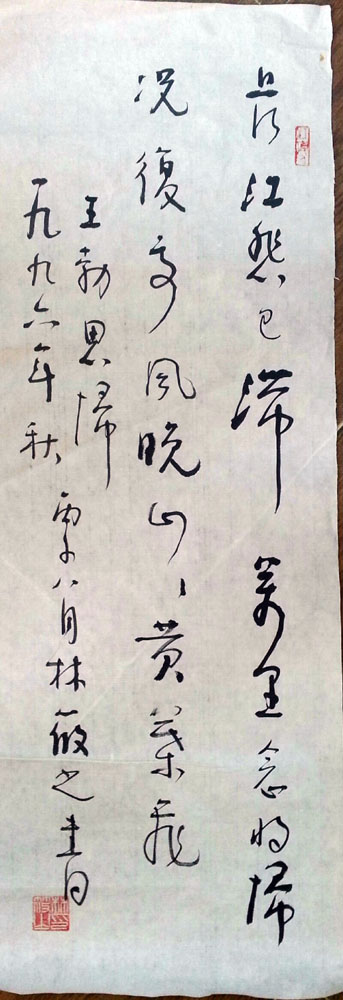 長江悲已滯萬里念將歸
况復高風晚山〻黄葉飛
王勃思歸
一九九六年秋丙子八月林筱之書